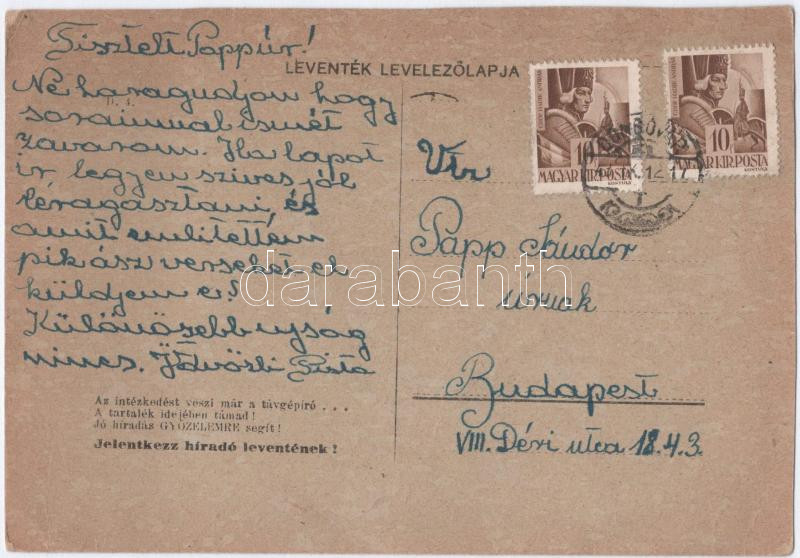 Tisztelt Pappúr!
Ne haragudjon hogy
soraimmal ismét
zavarom. Ha lapot
ir legyen szives jól
léragasztani, és
amit emlitettem
pikász verseket el
küldjem e?
Különösebb ujság
nincs. Üdvözli Pista
D. 4.
Az intézkedést veszi már a távgépíró . . .
A tartalék idejében támad!
Jó híradás GYŐZELEMRE segít!
Jelentkezz híradó leventének!
LEVENTÉK LEVELEZŐLAPJA
10
MAGYAR KIR. POSTA
10
MAGYAR KIR. POSTA
Vtz
Papp Sándor
úrnak
Budapest
VIII. Déri utca 18.4.3.
darabanth